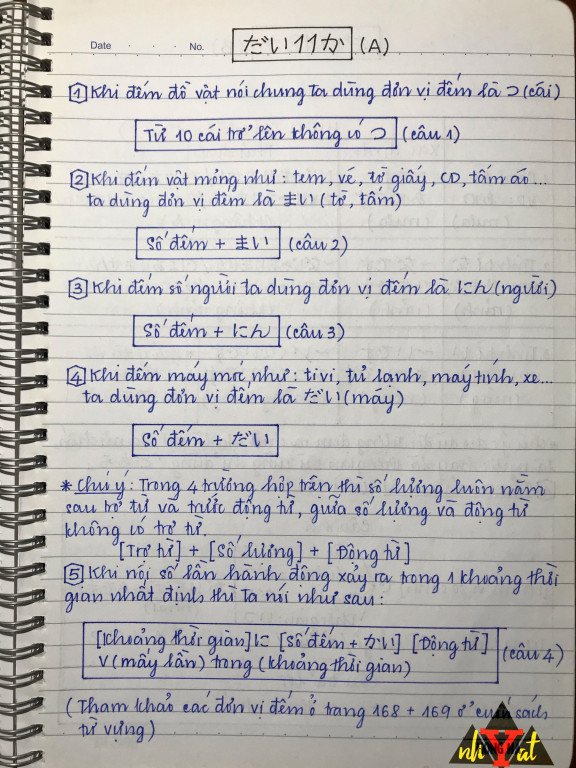 Date . . . No. だい11か (A)
1 Khi đếm đồ vật nói chung ta dùng đơn vị đếm là つ (cái)
Từ 10 cái trở lên không có つ (câu 1)
2 Khi đếm vật mỏng như: tem, vé, tờ giấy, CD, tấm áo...
ta dùng đơn vị đếm là まい (tờ, tấm)
Số đếm + まい (câu 2)
3 Khi đếm số người ta dùng đơn vị đếm là にん (người)
Số đếm + にん (câu 3)
4 Khi đếm máy móc như: tivi, tủ lạnh, máy tính, xe...
ta dùng đơn vị đếm là だい (máy)
Số đếm + だい
* Chú ý: Trong 4 trường hợp trên thì số lượng luôn nằm
sau trợ từ và trước động từ, giữa số lượng và động từ
không có trợ từ.
[Trợ từ] + [Số lượng] + [Động từ]
5 Khi nói số lần hành động xảy ra trong 1 khoảng thời
gian nhất định thì ta nói như sau:
[Khoảng thời gian] に [Số đếm + かい] [Động từ]
V (mấy lần) trong (khoảng thời gian) (câu 4)
(Tham khảo các đơn vị đếm ở trang 168 + 169 ở cuối sách
từ vựng)